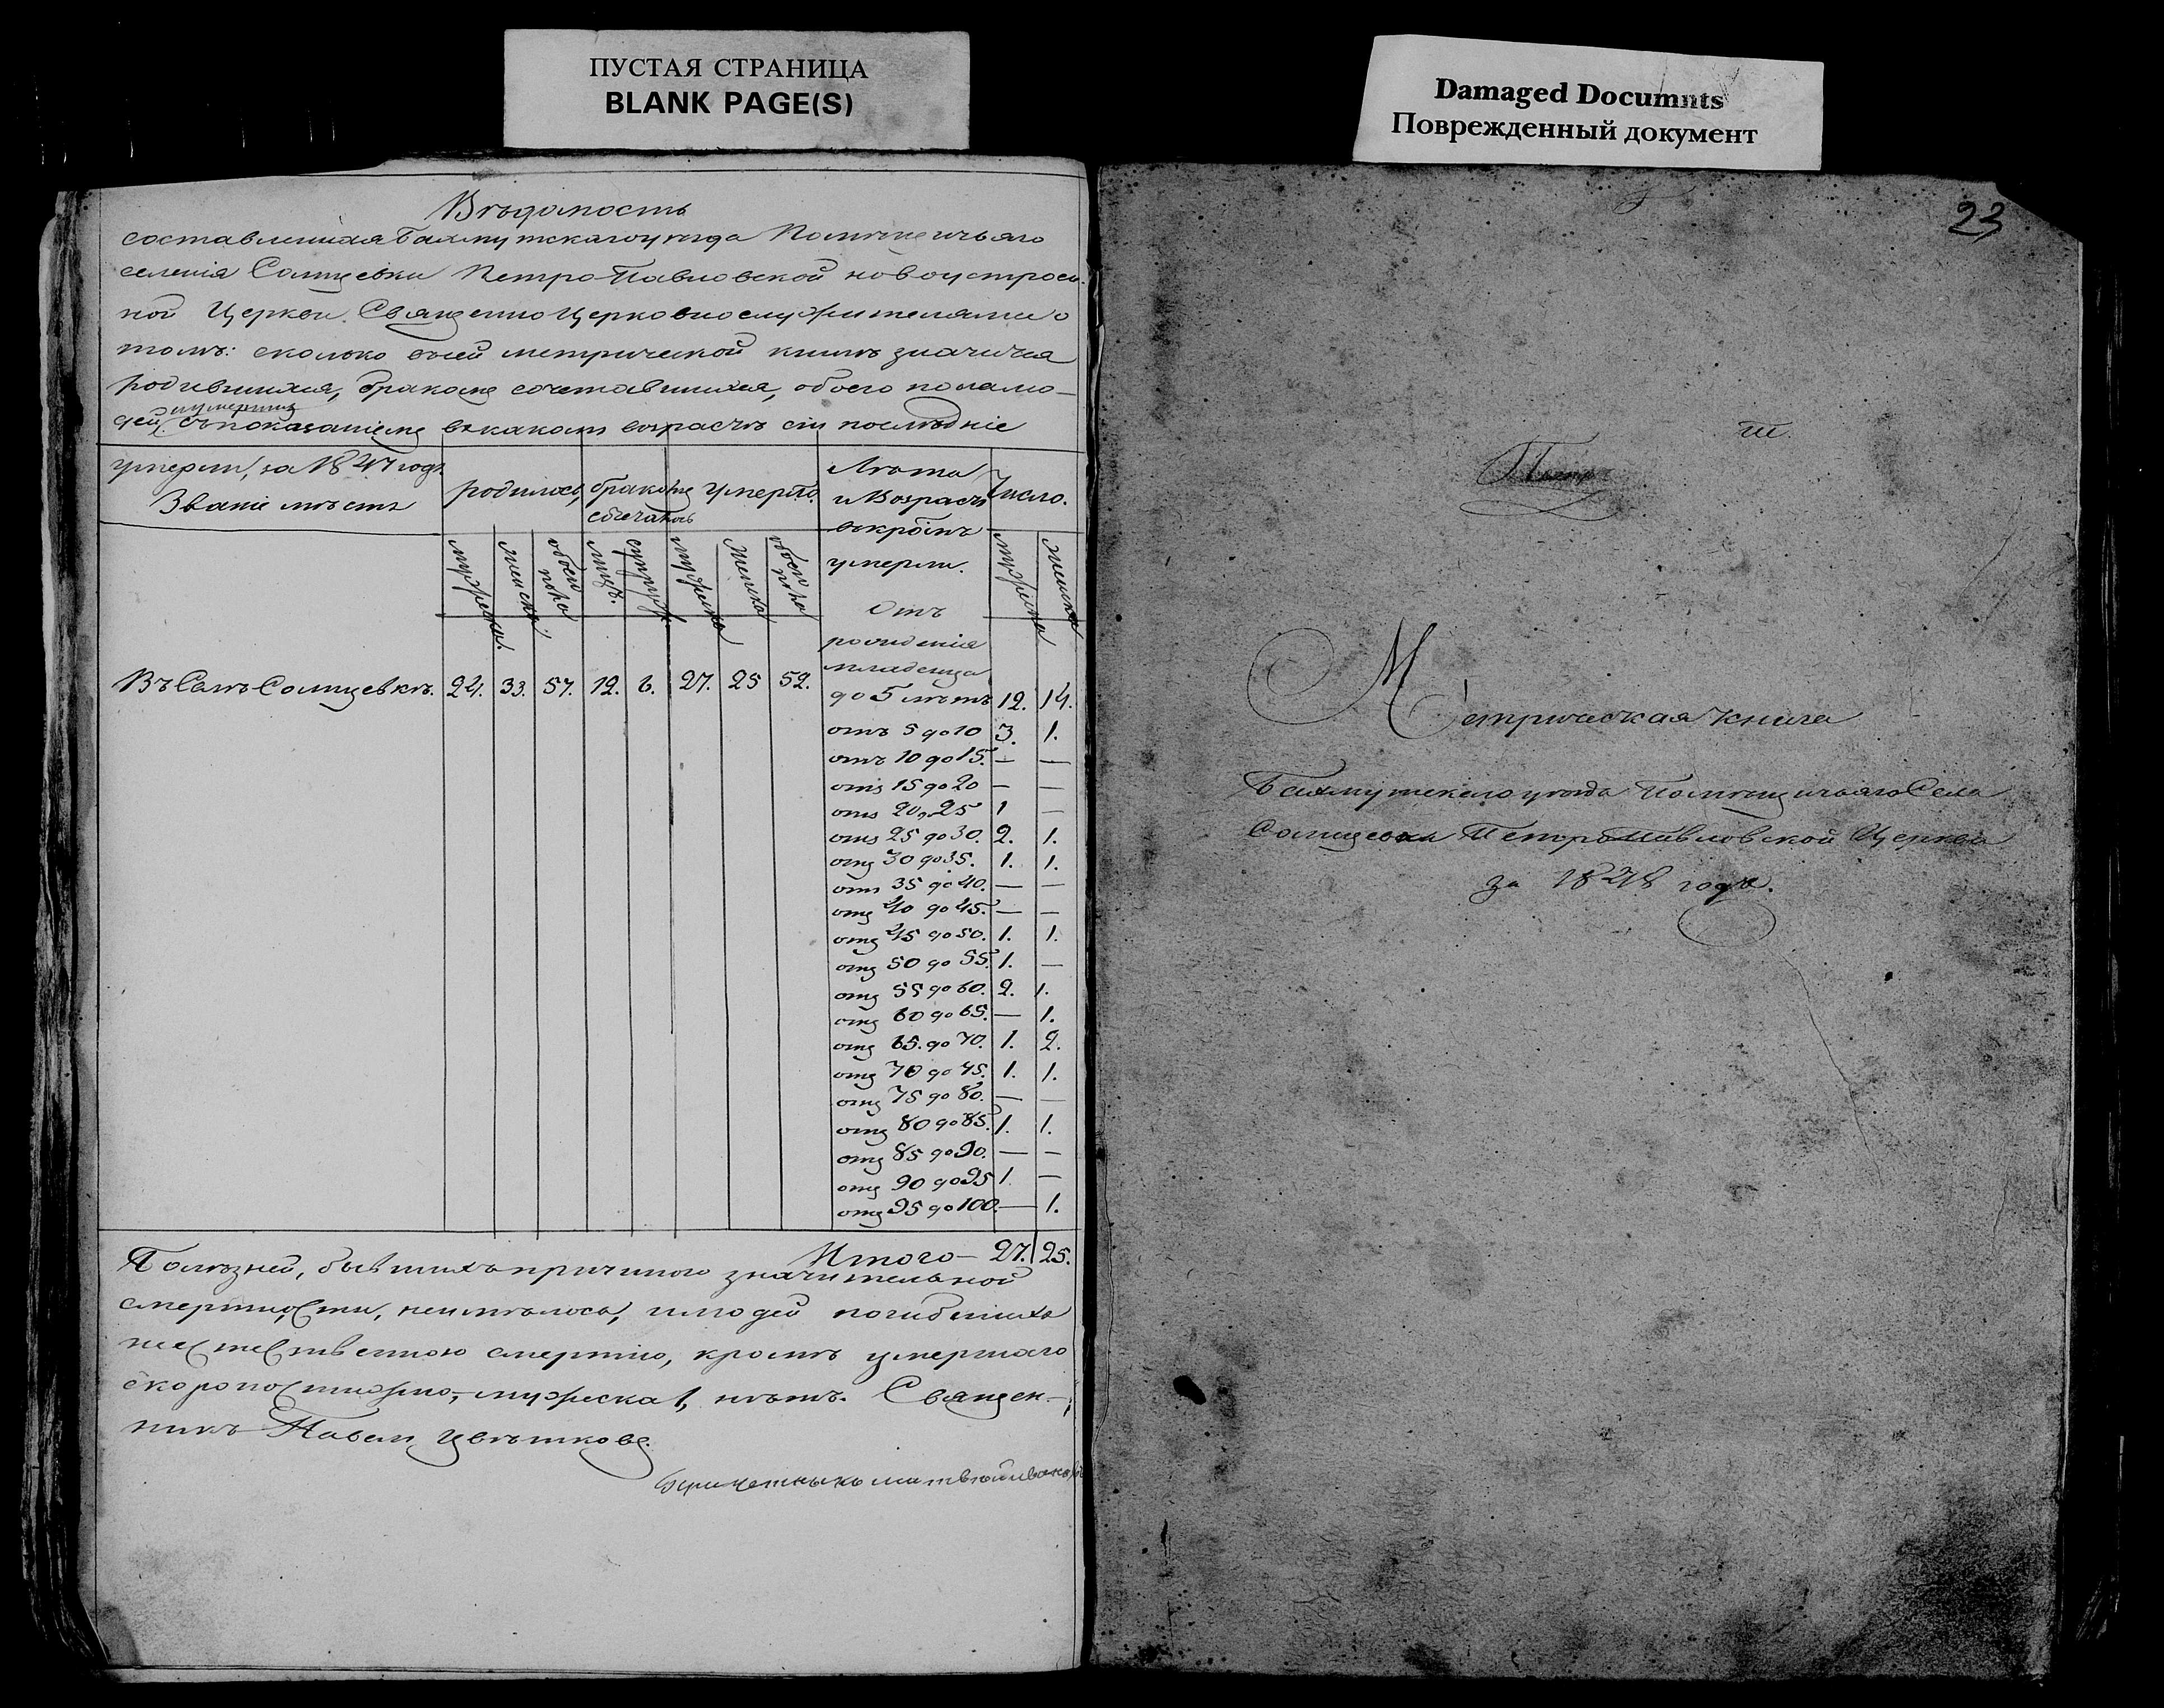 ПУСТАЯ СТРАНИЦА
BLANK PAGE(S)
Damaged Documnts
Поврежденный документ
Вѣдомость
составленная Бахмутскаго уѣзда Помѣщичьяго
селенія Солнцевки Петро-Павловской новоустроен-
ной Церкви Священно Церковнослужителями о
томъ: сколько въ сей метрической книгѣ значится
родившихся, бракомъ сочетавшихся, обоего пола лю-
дей, и умершихъ съ показаніемъ въ какомъ возрастѣ сіи послѣдніе
умерли, за 1847 годъ.
Званіе мѣстъ
родилось,
бракомъ сочеталось
умерло.
Лѣта и Возрастъ въ кроимъ умерли.
Число.
мужеска.
женска.
обоего пола
лицъ.
супруж.
мужеска
женска
обоего пола
мужеска
женска
Въ Селѣ Солнцевкѣ. 24. 33. 57. 12. 6. 27. 25 52.
Отъ
рожденія
младенца
до 5 лѣтъ 12. 14.
отъ 5 до 10 3. 1.
отъ 10 до 15. — —
отъ 15 до 20 — —
отъ 20 „ 25 1 —
отъ 25 до 30. 2. 1.
отъ 30 до 35. 1. 1.
отъ 35 до 40. — —
отъ 40 до 45. — —
отъ 45 до 50. 1. 1.
отъ 50 до 55. 1. —
отъ 55 до 60. 2. 1.
отъ 60 до 65. — 1.
отъ 65. до 70. 1. 2.
отъ 70 до 75. 1. 1.
отъ 75 до 80. — —
отъ 80 до 85. 1. 1.
отъ 85 до 90. — —
отъ 90 до 95 1. —
отъ 95 до 100. — 1.
Итого — 27. 25.
Болѣзней, бывшихъ причиною значительной
смертности, неимѣлось, и людей погибшихъ
неестественною смертію, кромѣ умершаго
скоропостижно, — мужеска 1, нѣтъ. Священ-
никъ Павелъ Цвѣтковъ.
23
Метрическая книга
Бахмутскаго уѣзда Помѣщичьяго Села
Солнцевки Петропавловской Церкви
за 1848 годъ.